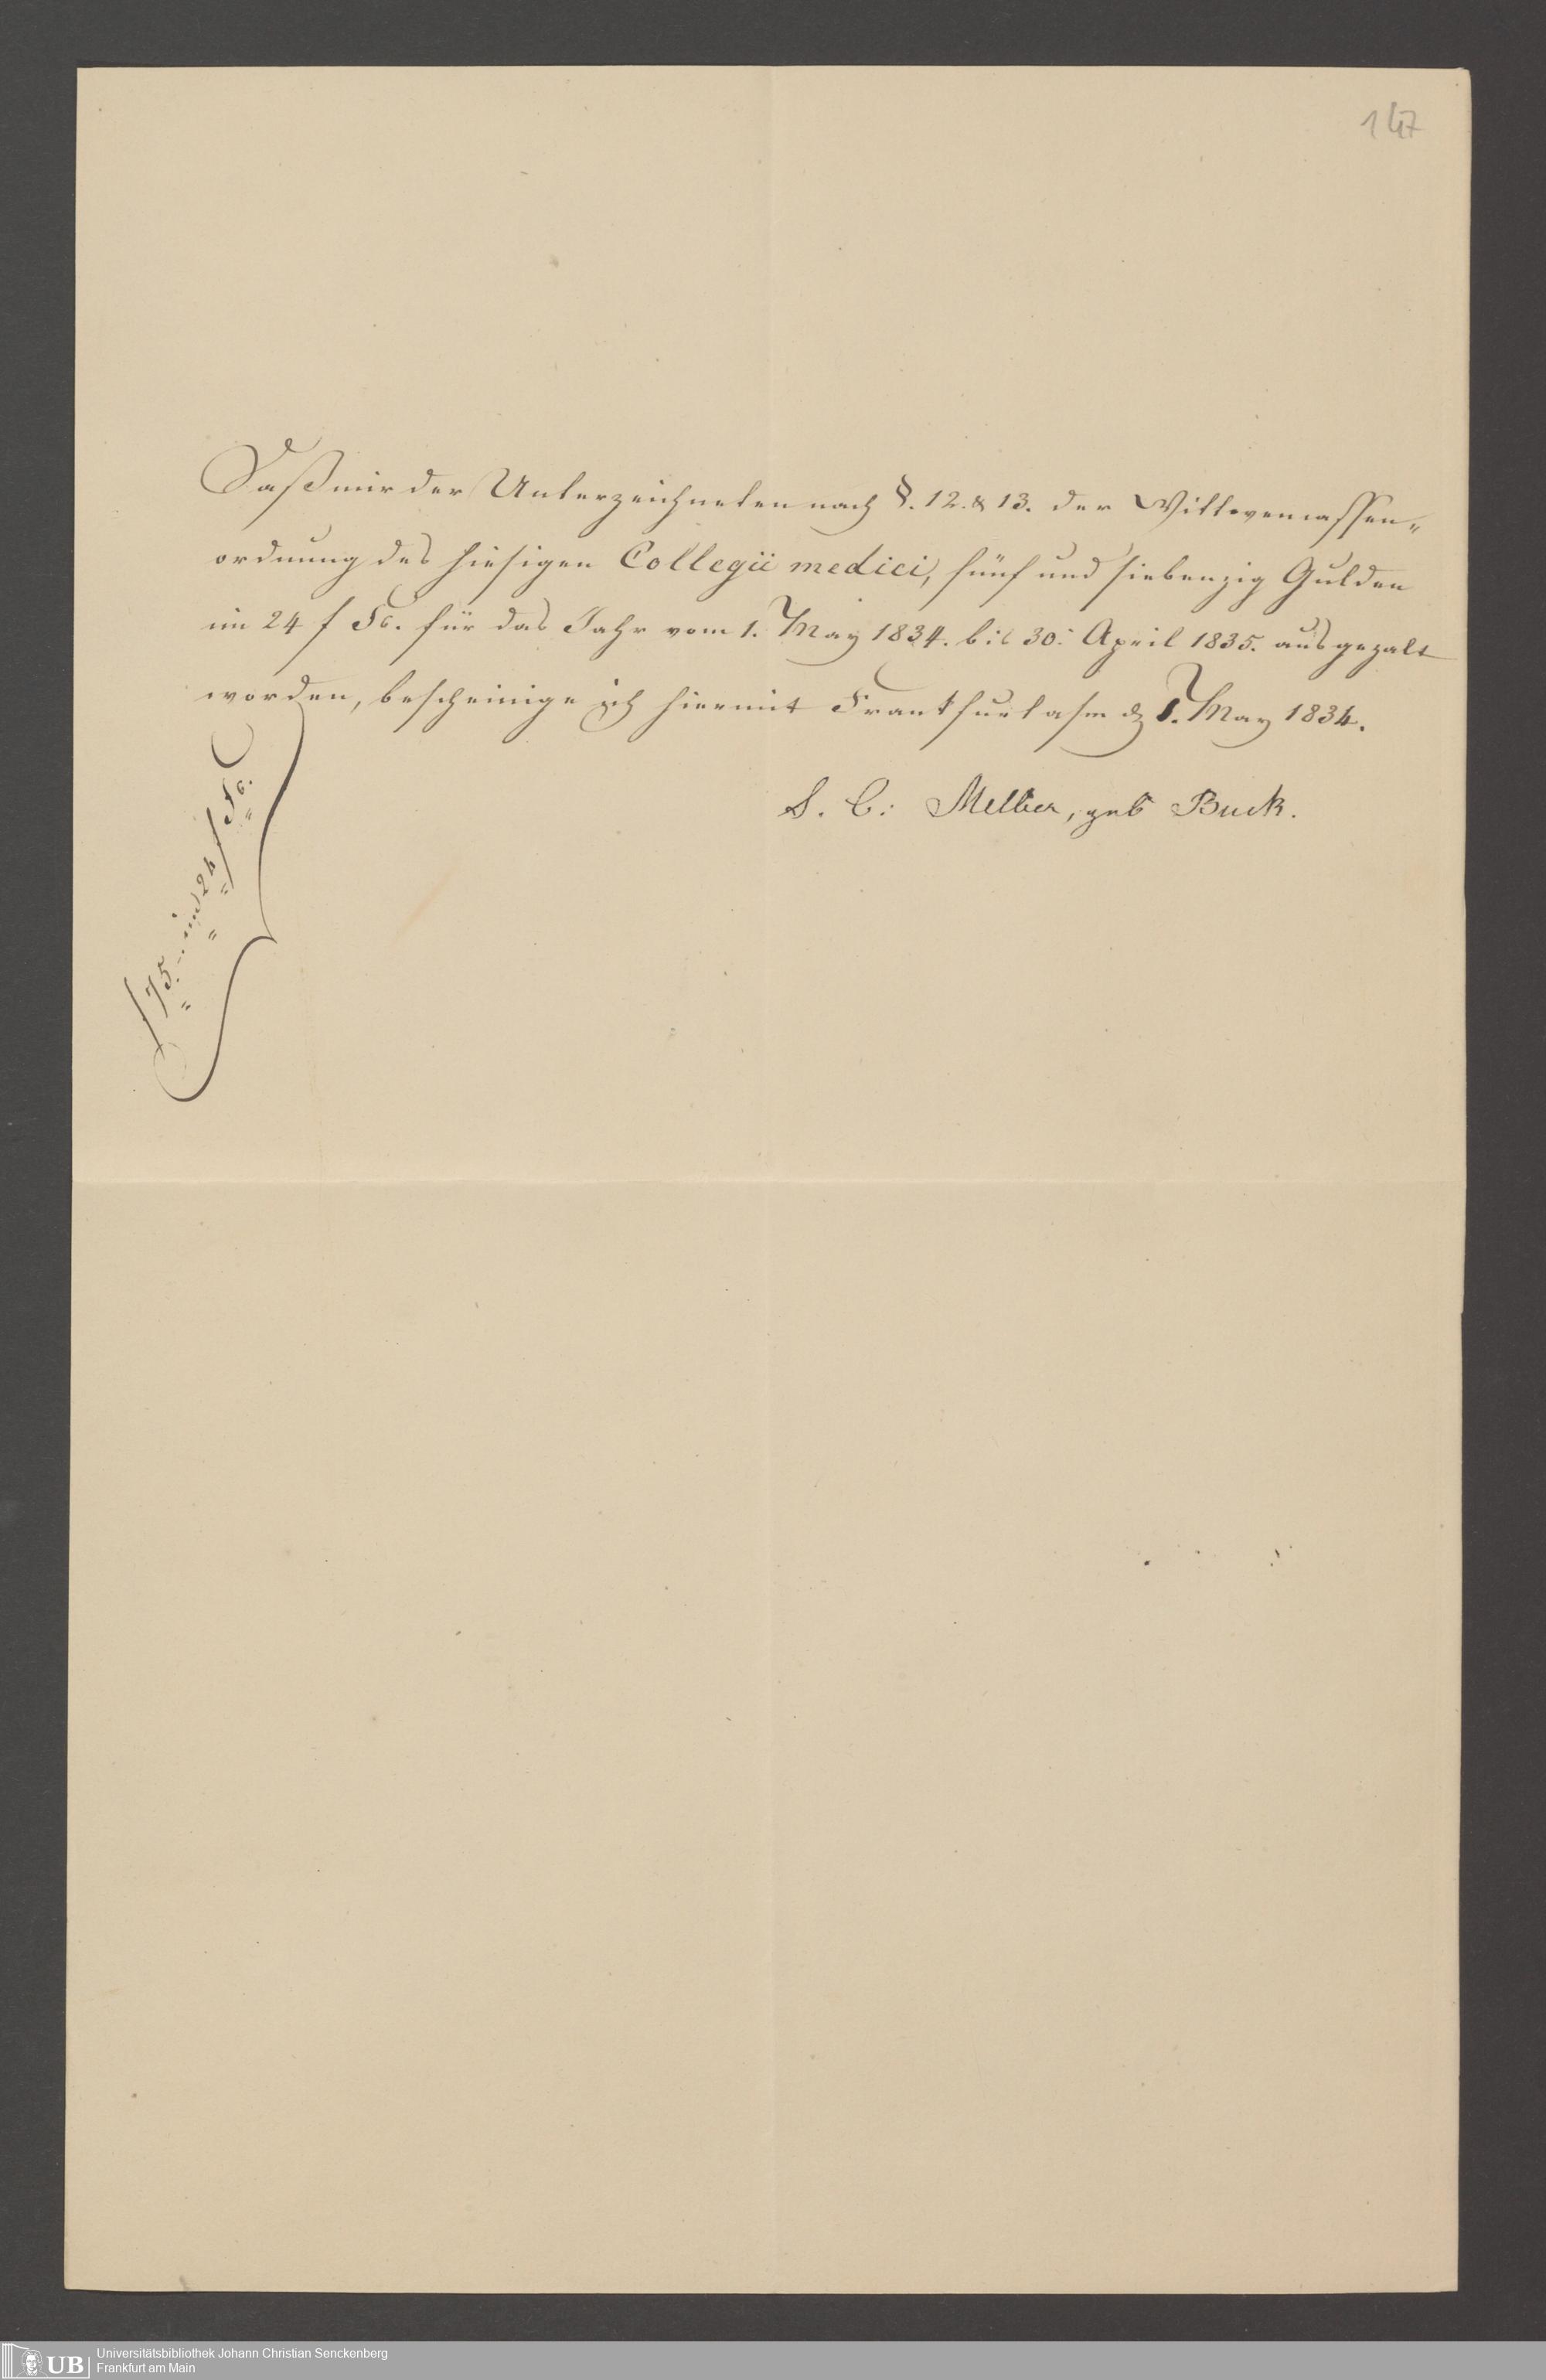 147
Daß mir der Unterzeichneten nach §. 12. & 13. der Wittwencassen-
ordnung des hiesigen Collegii medici, fünf und siebenzig Gulden
im 24 f Fs. für das Jahr vom 1. May 1834. bis 30. April 1835. ausgezalt
worden, bescheinige ich hiermit Frankfurt a/m d 1. May 1834.
S. C: Melber, geb Buck.
f 75.- im 24 f Fs.
UB Universitätsbibliothek Johann Christian Senckenberg
Frankfurt am Main